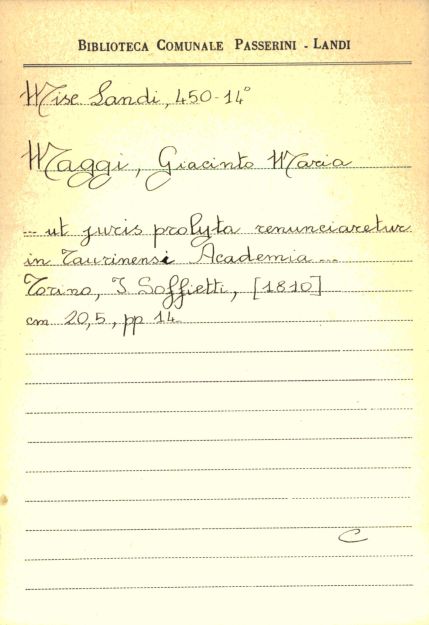 BIBLIOTECA COMUNALE PASSERINI - LANDI
Misc Landi, 450-14°
Maggi, Giacinto Maria
... ut juris prolyta renunciaretur
in Taurinensi Academia ...
Torino, I Soffietti, [1810]
cm 20,5, pp 14
C